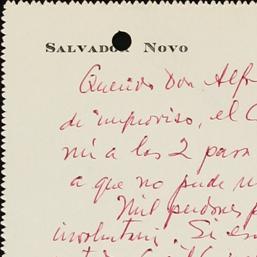 SALVADOR NOVO
Querido Don Alf
de improviso, el C
mí a las 2 para
a que no pude
Mil perdones p
involuntari. Si es